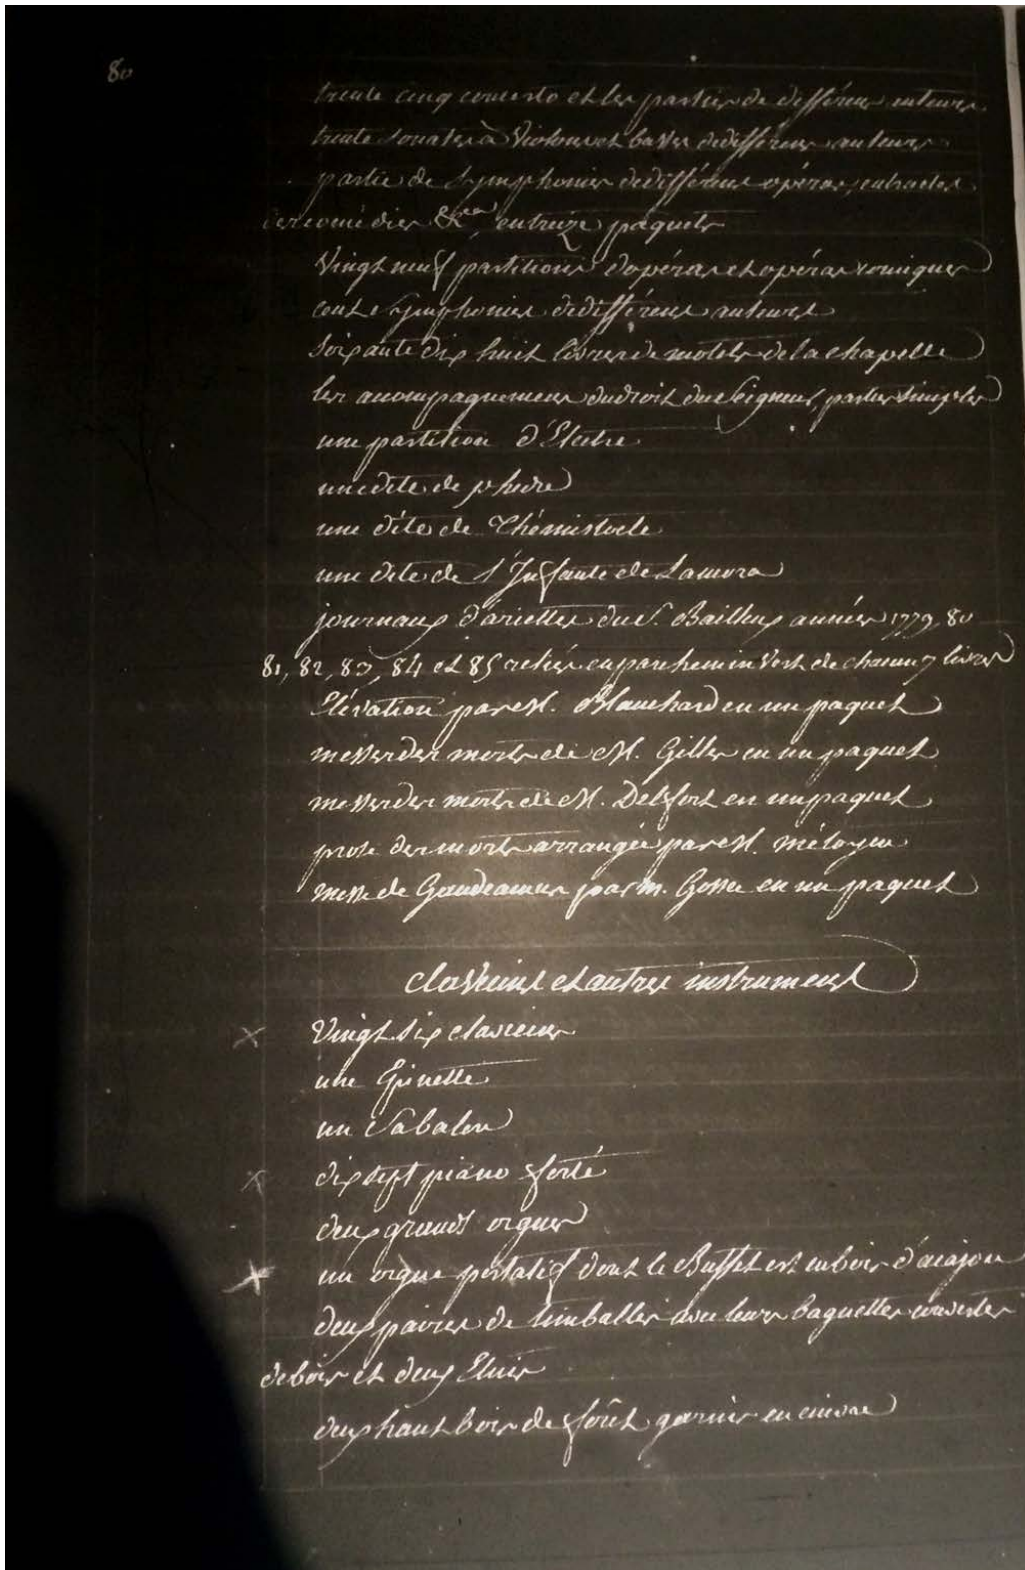 80
trente cinq concerto et les parties de différens auteurs
trente sonates à Violons et basses de différens auteurs
partie de symphonies de différens opéras, entractes
des comédies &ca en treize paquets
Vingt neuf partitions d'opéras et opéras comiques
cent symphonies de différens auteurs
soixante dix huit livres de motets de la chapelle
les acompagnemens du droit du Seigneur, parties simples
une partition d'Electre
une dite de phedre
une dite de Thémistocle
une dite de l'Infante de Zamora
journaux d'ariettes du S. Bailleux années 1779, 80
81, 82, 83, 84 et 85 reliés en parchemin Vert de chacun 7 livres
Elévation par M. Blanchard en un paquet
messes des morts de M. Gilles en un paquet
messes des morts de M. Delfort en un paquet
prose des morts arrangée par M. métoyen
messe de Gaudeamus par m. Gossec en un paquet
claveVins et autres instrumens
Vingt six clavecins
une Epinette
un
dix sept piano forté
deux grands orgues
un orgue portatif dont le Buffet est en bois d'acajou
deux paires de timballes avec leurs baguettes couvertes
de bois et deux Etuis
deux haut bois de forêt garnis en cuivre